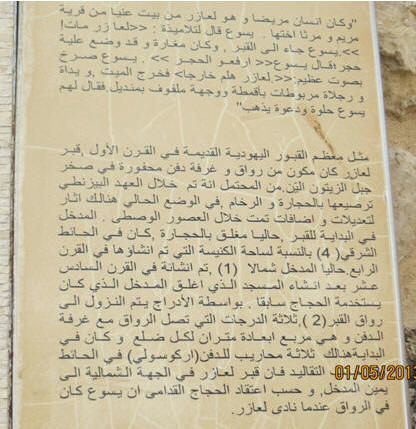 "وكان انسان مريضا و هو لعازر من بيت عنيا من قرية
مريم و مرثا اختها . يسوع قال لتلاميذة : <<لعازر مات!
>>.يسوع جاء الى القبر , وكان مغارة و قد وضع علية
حجر.قال يسوع<< ارفعو الحجر >> . يسوع صرخ
بصوت عظيم:<< لعازر هلم خارجا> فخرج الميت ,و يداة
و رجلاة مربوطات بأقمطة ووجهة ملفوف بمنديل فقال لهم
يسوع حلوة ودعوة يذهب"
مثل معظم القبور اليهودية القديمة في القرن الأول ,قبر
لعازر كان مكون من رواق و غرفة دفن محفورة في صخر
جبل الزيتون اللين.من المحتمل انة تم خلال العهد البيزنطي
ترصيعها بالحجارة و الرخام ,في الوضع الحالي هنالك اثار
لتعديلات و اضافات تمت خلال العصور الوصطى . المدخل
في البداية للقبر ,حاليا مغلق بالحجارة ,كان في الحائط
الشرقي( 4) بالنسبة لساحة الكنيسة التي تم انشاؤها في القرن
الرابع.حاليا المدخل شمالا (1) ,تم انشائة في القرن السادس
عشر بعد انشاء المسجد الذي اغلق المدخل الذي كان
يستخدمة الحجاج سابقا . بواسطة الأدراج يتم النزول الى
رواق القبر( 2) ,ثلاثة الدرجات التي تصل الرواق مع غرفة
الدفن و هي مربع ابعادة متران لكل ضلع و كان في
البدايةهنالك ثلاثة محاريب للدفن(اركوسولي) في الحائط
التقاليد فان قبر لعازر في الجهة الشمالية الى
يمين المدخل, و حسب اعتقاد الحجاج القدامى ان يسوع كان
في الرواق عندما نادى لعازر.
01/05/201